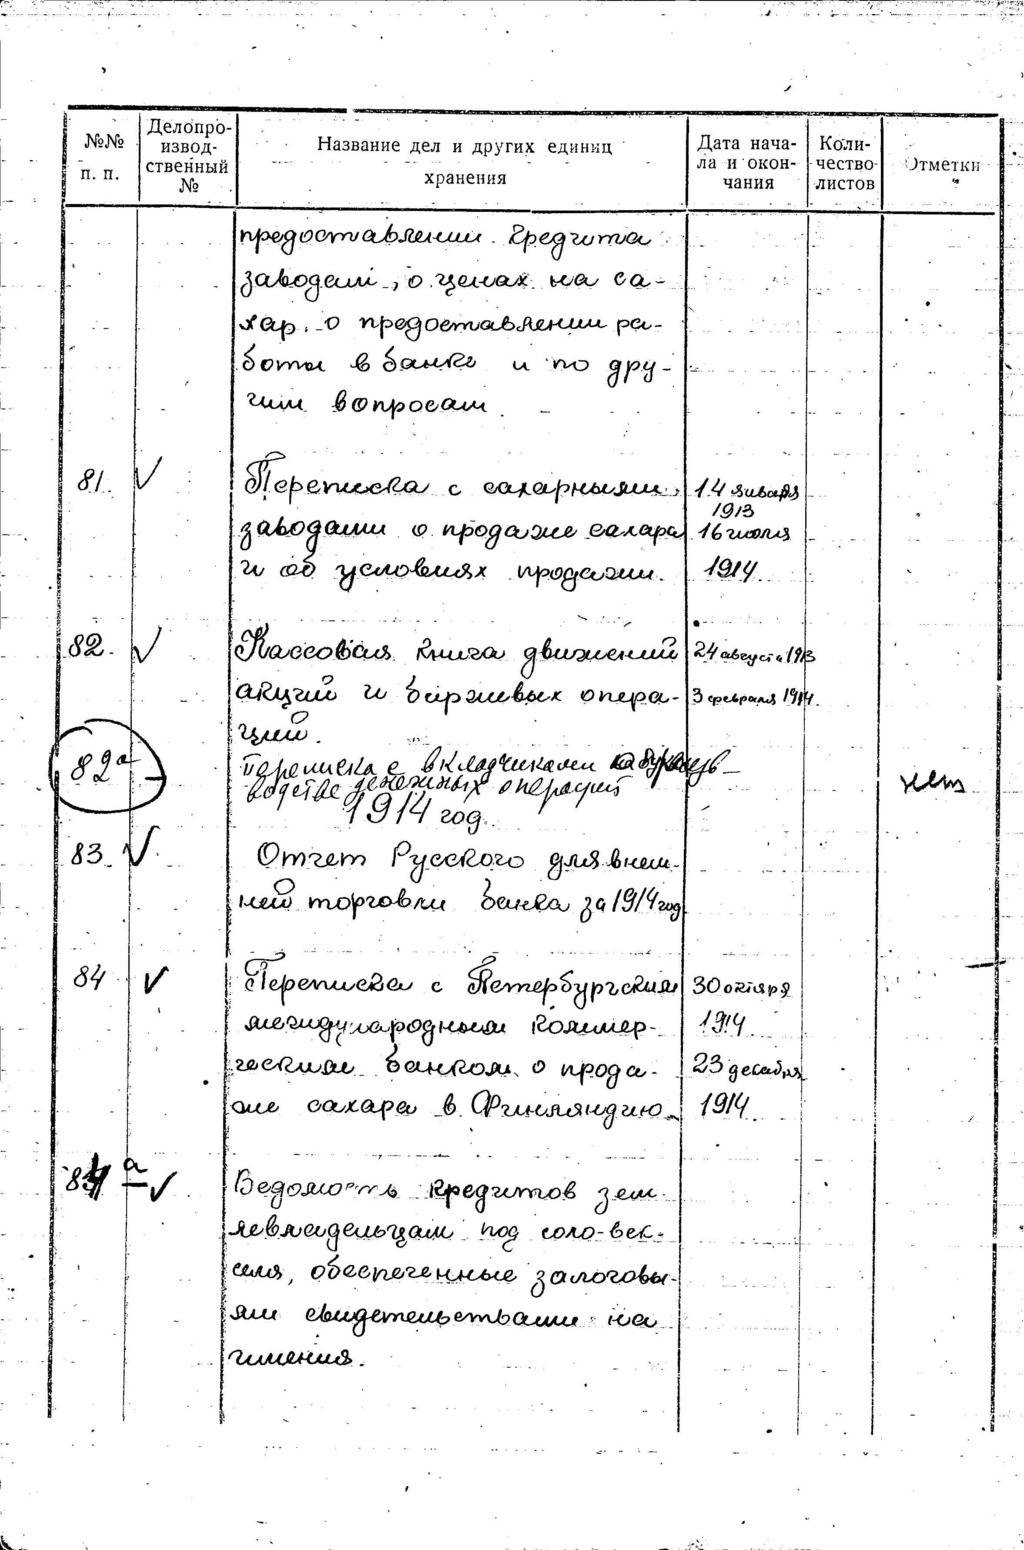 №№ п. п.
Делопро-
извод-
ственный
№
Название дел и других единиц
хранения
Дата нача-
ла и окон-
чания
Коли-
чество
листов
Отметки
предоставлении кредита
заводам, о ценах на са-
хар, о предоставлении ра-
боты в банке и по дру-
гим вопросам.
81. Переписка с сахарными 14 января
1913
заводами о продаже сахара 16 июля
и об условиях продажи. 1914
82. Кассовая книга движений 24 августа 1913
акций и биржевых опера- 3 февраля 1914.
ций.
82а переписка с вкладчиками произ-
водстве денежных операций нет
1914 год.
83 Отчет Русского для внеш-
ней торговли банка за 1914 год
84 Переписка с Петербургским 30 октября
международным коммер- 1914
ческим банком о прода- 23 декабря
же сахара в Финляндию. 1914
84а Ведомость кредитов зем-
левладельцам под соло-век-
селя, обеспеченные залоговы-
ми свидетельствами на
имения.